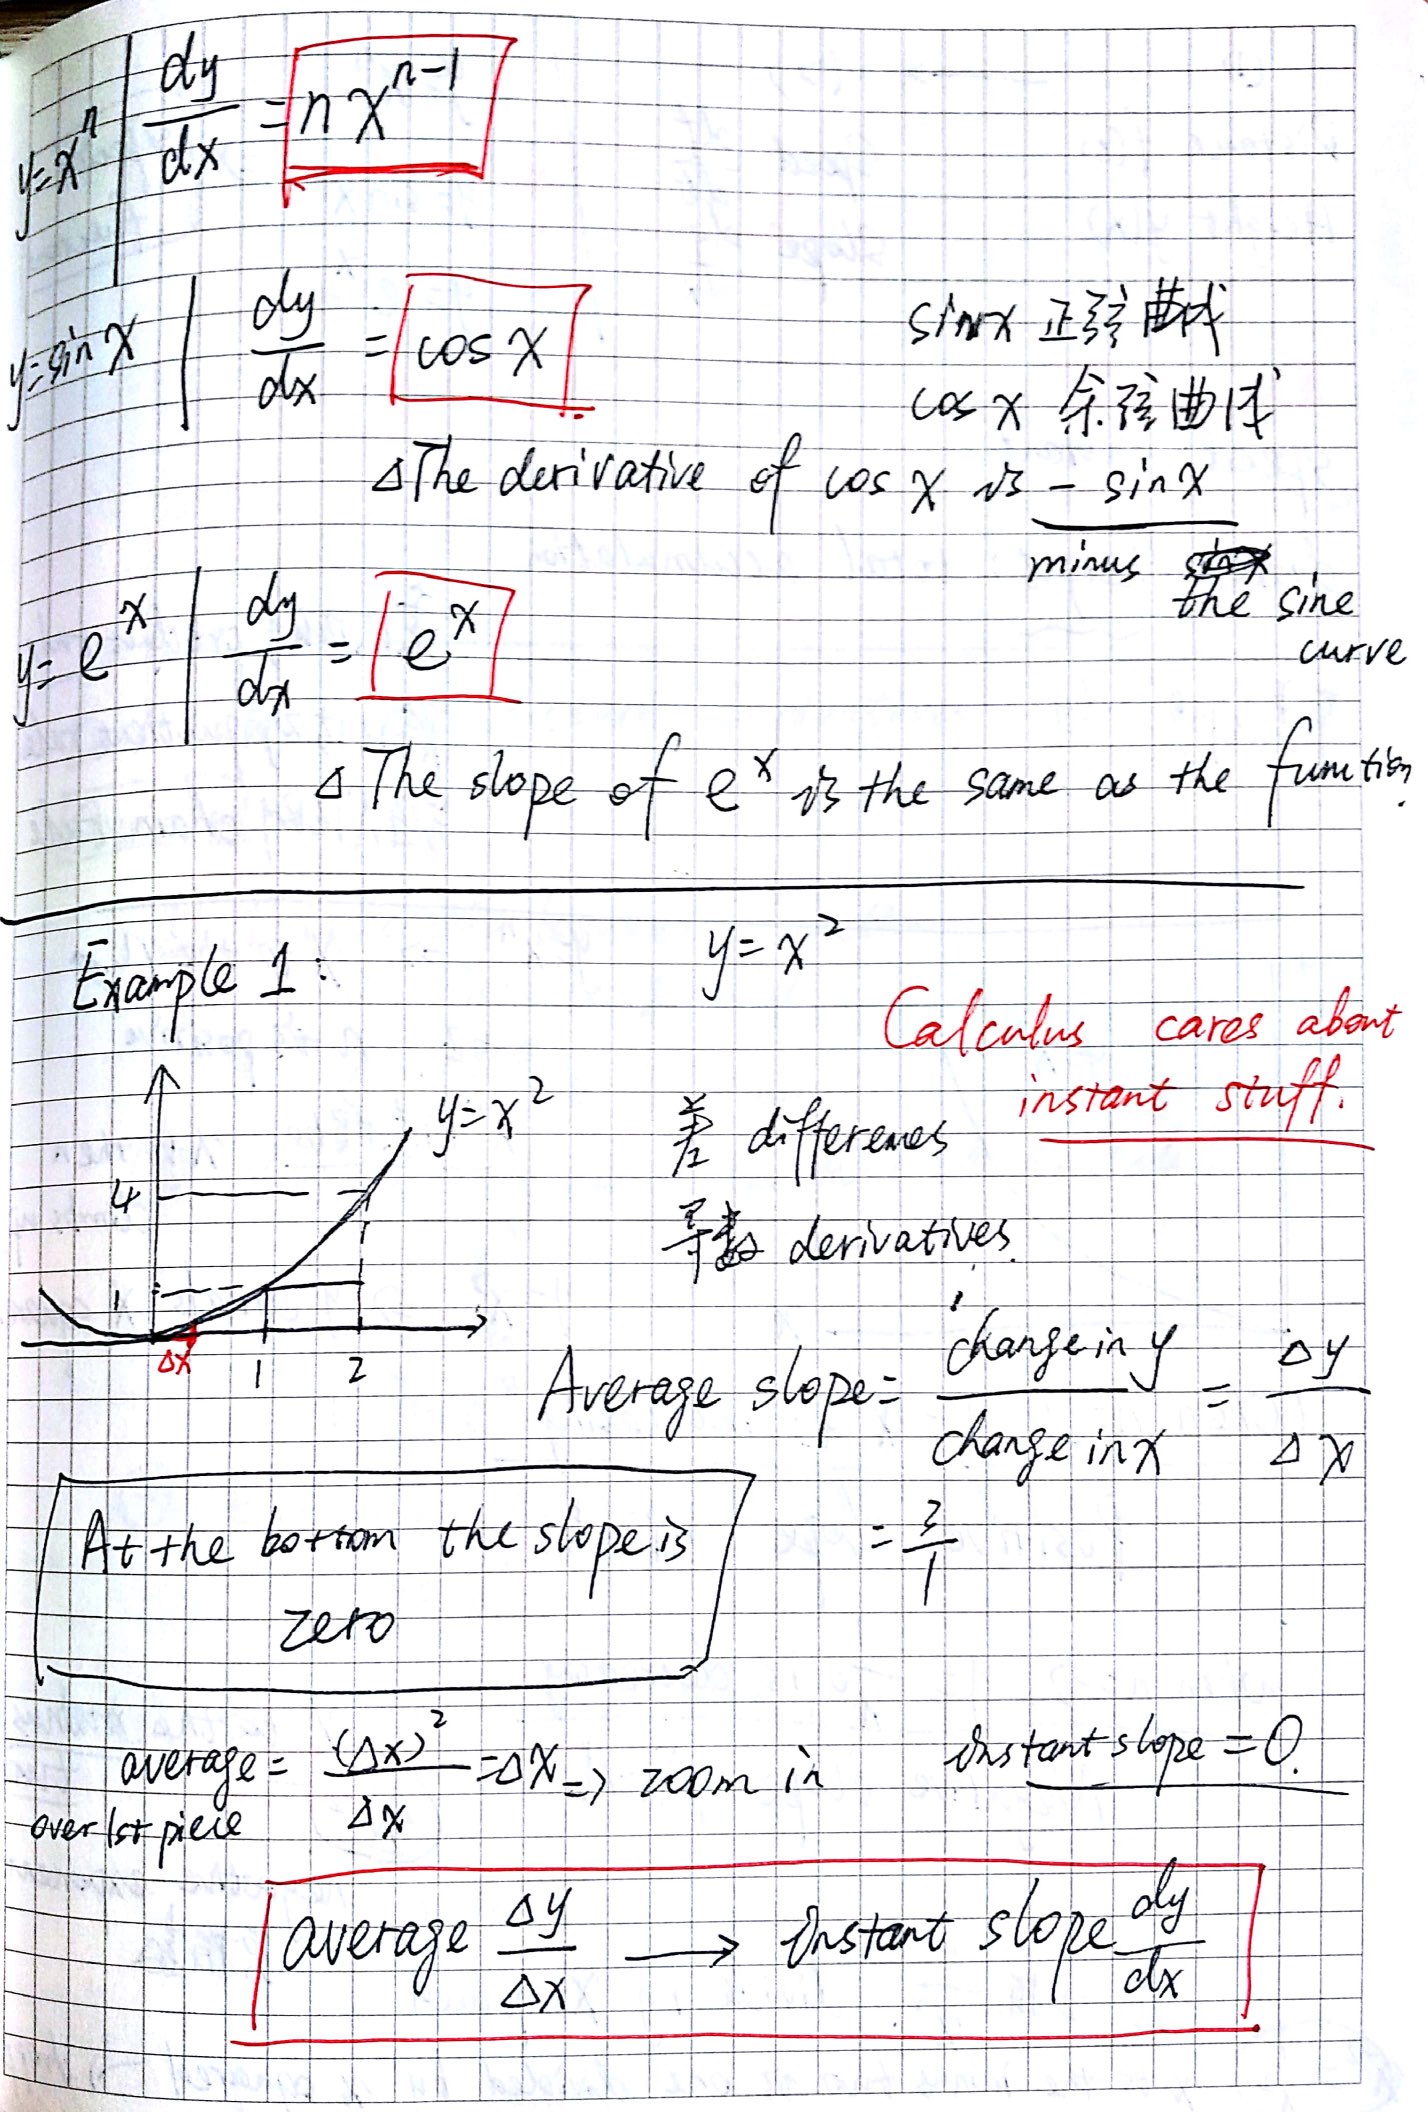 y=xⁿ | dy/dx = nxⁿ⁻¹
y=sin x | dy/dx = cos x
sin x 正弦曲线
cos x 余弦曲线
△The derivative of cos x is - sin x
minus the sine
curve
y=eˣ | dy/dx = eˣ
△The slope of eˣ is the same as the function.
Example 1: y=x²
Calculus cares about
instant stuff.
y=x²
4
1
△x 1 2
差 differences
导数 derivatives.
Average slope = change in y / change in x = △y / △x
= 3/1
At the bottom the slope is
zero
average = (△x)² / △x = △x => zoom in instant slope = 0.
over 1st piece
average △y/△x → instant slope dy/dx